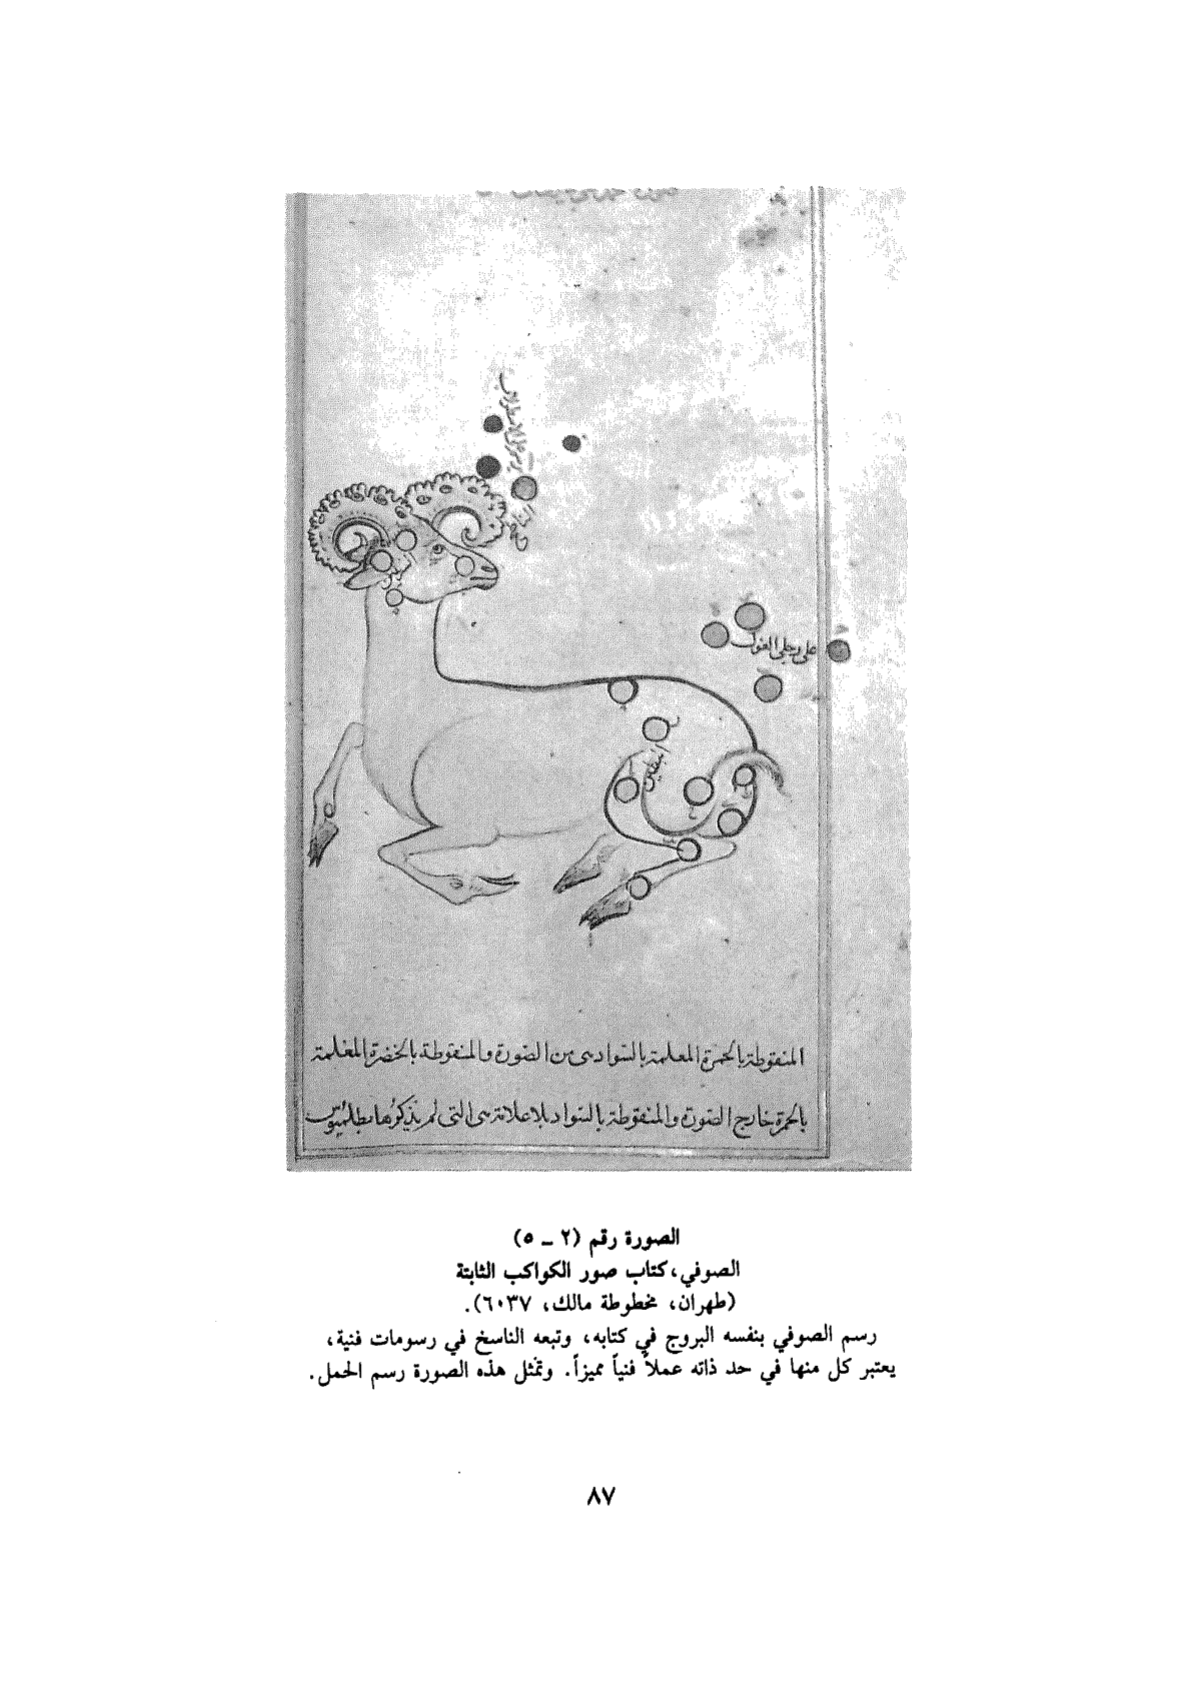 الناطح
على رجلى الغول
البطين
المنقوطة بالحمرة المعلمة بالسواد هى من الصورة والمنقوطة بالخضرة المعلمة
بالحمرة خارج الصورة والمنقوطة بالسواد بلا علامة هى التى لم يذكرها بطلميوس
الصورة رقم (٢ ــ ٥)
الصوفي، كتاب صور الكواكب الثابتة
(طهران، مخطوطة مالك، ٦٠٣٧).
رسم الصوفي بنفسه البروج في كتابه، وتبعه الناسخ في رسومات فنية،
يعتبر كل منها في حد ذاته عملاً فنياً مميزاً. وتمثل هذه الصورة رسم الحمل.
٨٧